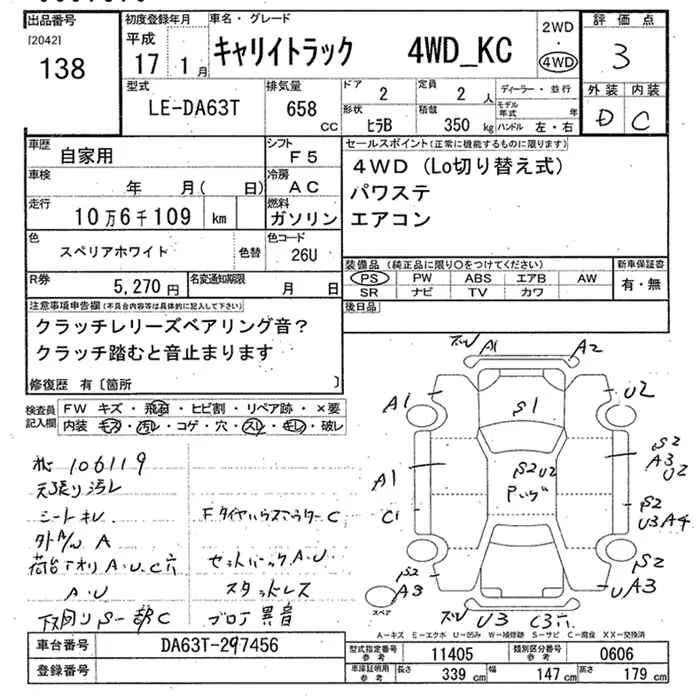 出品番号
[2042]
138
初度登録年月
平成
17 1月
車名・グレード
キャリイトラック 4WD_KC
2WD
・
4WD
評価点
3
外装 内装
D C
型式
LE-DA63T
排気量
658 cc
ドア
2
定員
2 人
形状
ヒラB
積載
350 kg
ディーラー・並行
モデル年式 年
ハンドル 左・右
車歴
自家用
シフト
F5
車検
年 月( 日)
冷房
AC
走行
10万6千109 km
燃料
ガソリン
色
スペリアホワイト
色替
色コード
26U
R券
5,270円
名変通知期限
月 日
セールスポイント(正常に機能するものに限ります)
4WD(Lo切り替え式)
パワステ
エアコン
装備品(純正品に限り○をつけてください)
PS PW ABS エアB AW
SR ナビ TV カワ
新車保証書
有・無
後日品
注意事項申告欄(不具合内容等は具体的に記入して下さい)
クラッチレリーズベアリング音?
クラッチ踏むと音止まります
修復歴 有〔箇所 〕
検査員記入欄
FW キズ・飛石・ヒビ割・リペア跡・×要
内装 キズ・汚レ・コゲ・穴・スレ・キレ・破レ
106119
天張り汚レ
シートキレ
外A/W A
荷台アオリ A.U.C穴
A.U
下回り S一部C
FタイヤハウスアウターC
セットバックA.U
スタッドレス
ブロア異音
A1
A2
A1
U2
S1
A1
S2 U2
S2
A3
U2
C1
S2
U3 A4
S2
A3
S2
UA3
U3
C3穴
スペア
A-キズ E-エクボ U-凹み W-補修跡 S-サビ C-腐食 XX-交換済
車台番号
DA63T-297456
登録番号
型式指定番号
参考
11405
類別区分番号
参考
0606
車庫証明用
参考
長さ
339 cm
幅
147 cm
高さ
179 cm